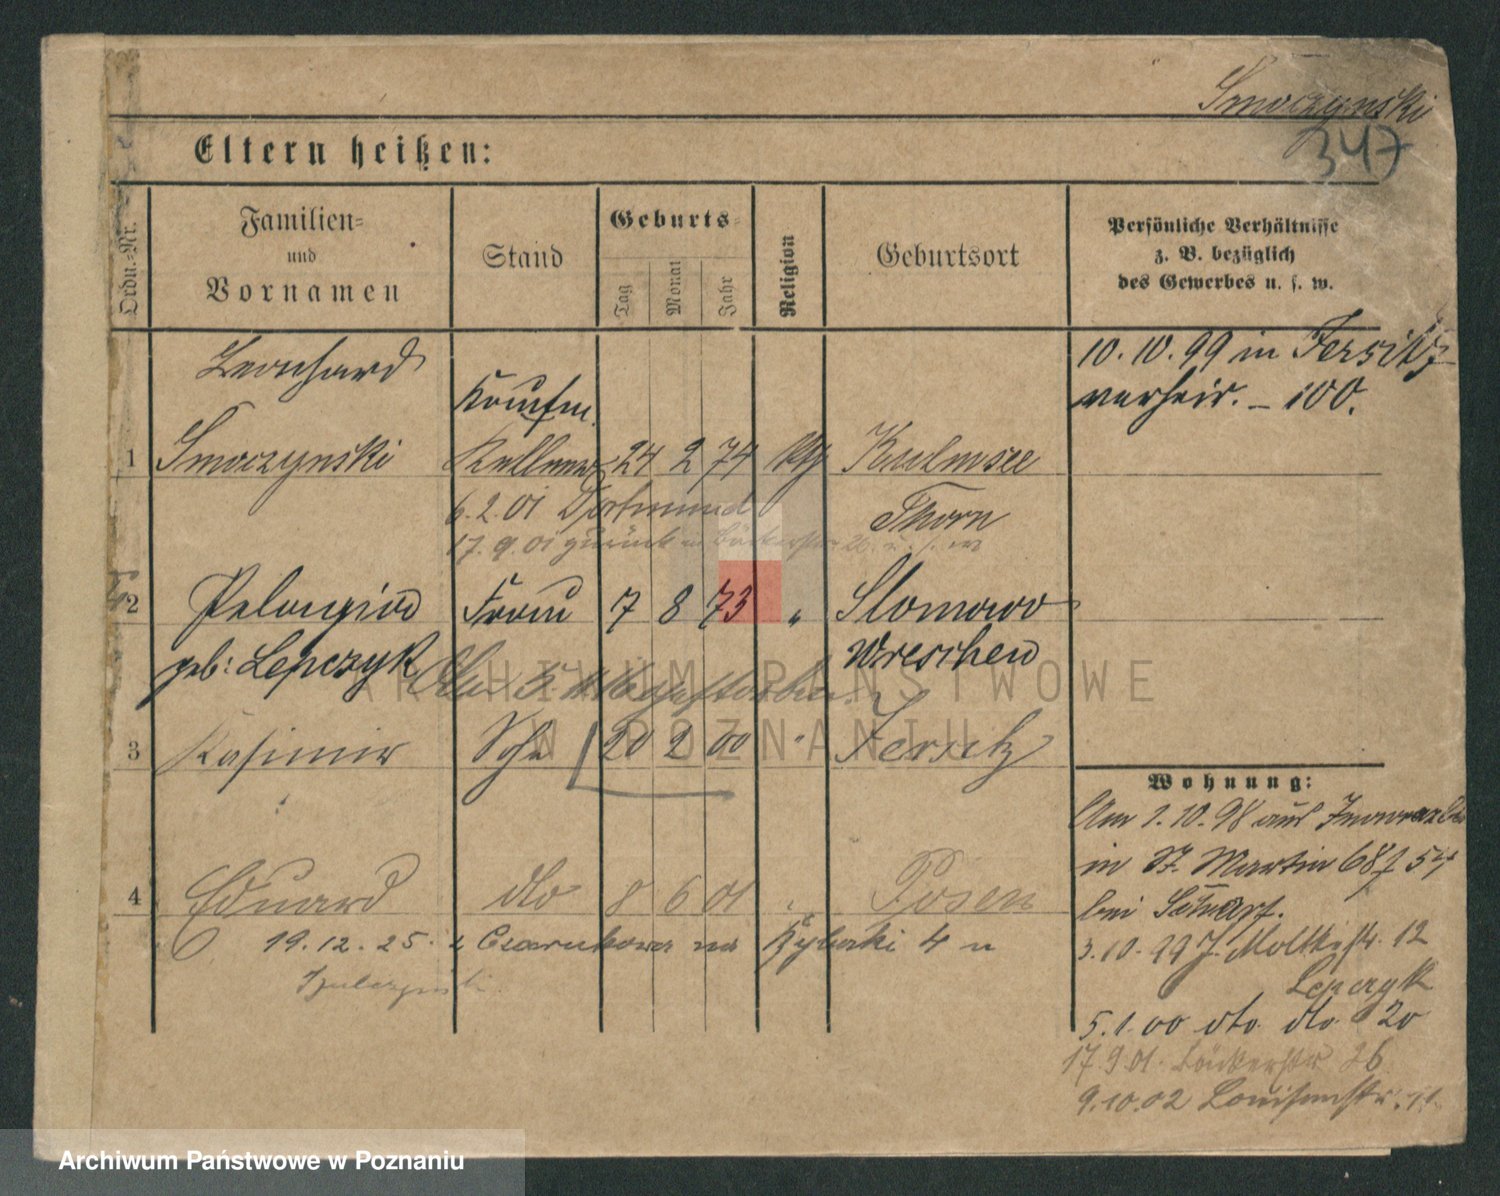 Smoczynski
347
Eltern heißen:
Ordn.-Nr.
Familien-
und
Vornamen
Stand
Geburts-
Tag
Monat
Jahr
Religion
Geburtsort
Persönliche Verhältnisse
z. B. bezüglich
des Gewerbes u. s. w.
Leonhard
Kaufm.
1 Smoczynski Kellner 24 2 74 kth Kulmsee
6.2.01 Dortmund Thorn
17.9.01 zurück Bäckerstr
10.10.99 in Jersitz
verheir. - 100.
2 Pelagia Frau 7 8 73 " Slomowo
geb: Lepczyk Wreschen
3 Kasimir Sohn 20 2 00 " Jersitz
4 Eduard dto 8 6 01 " Posen
19.12.25. z Czarnkowa na Rybaki 4
Wohnung:
Am 1.10.98 aus
in St. Martin 68
bei
3.10.99 J. Moltkestr. 12
Lepczyk
5.1.00 dto. dto. 20
17.9.01. Bäckerstr 26
9.10.02 Louisenstr. 11
ARCHIWUM PAŃSTWOWE
W POZNANIU
Archiwum Państwowe w Poznaniu